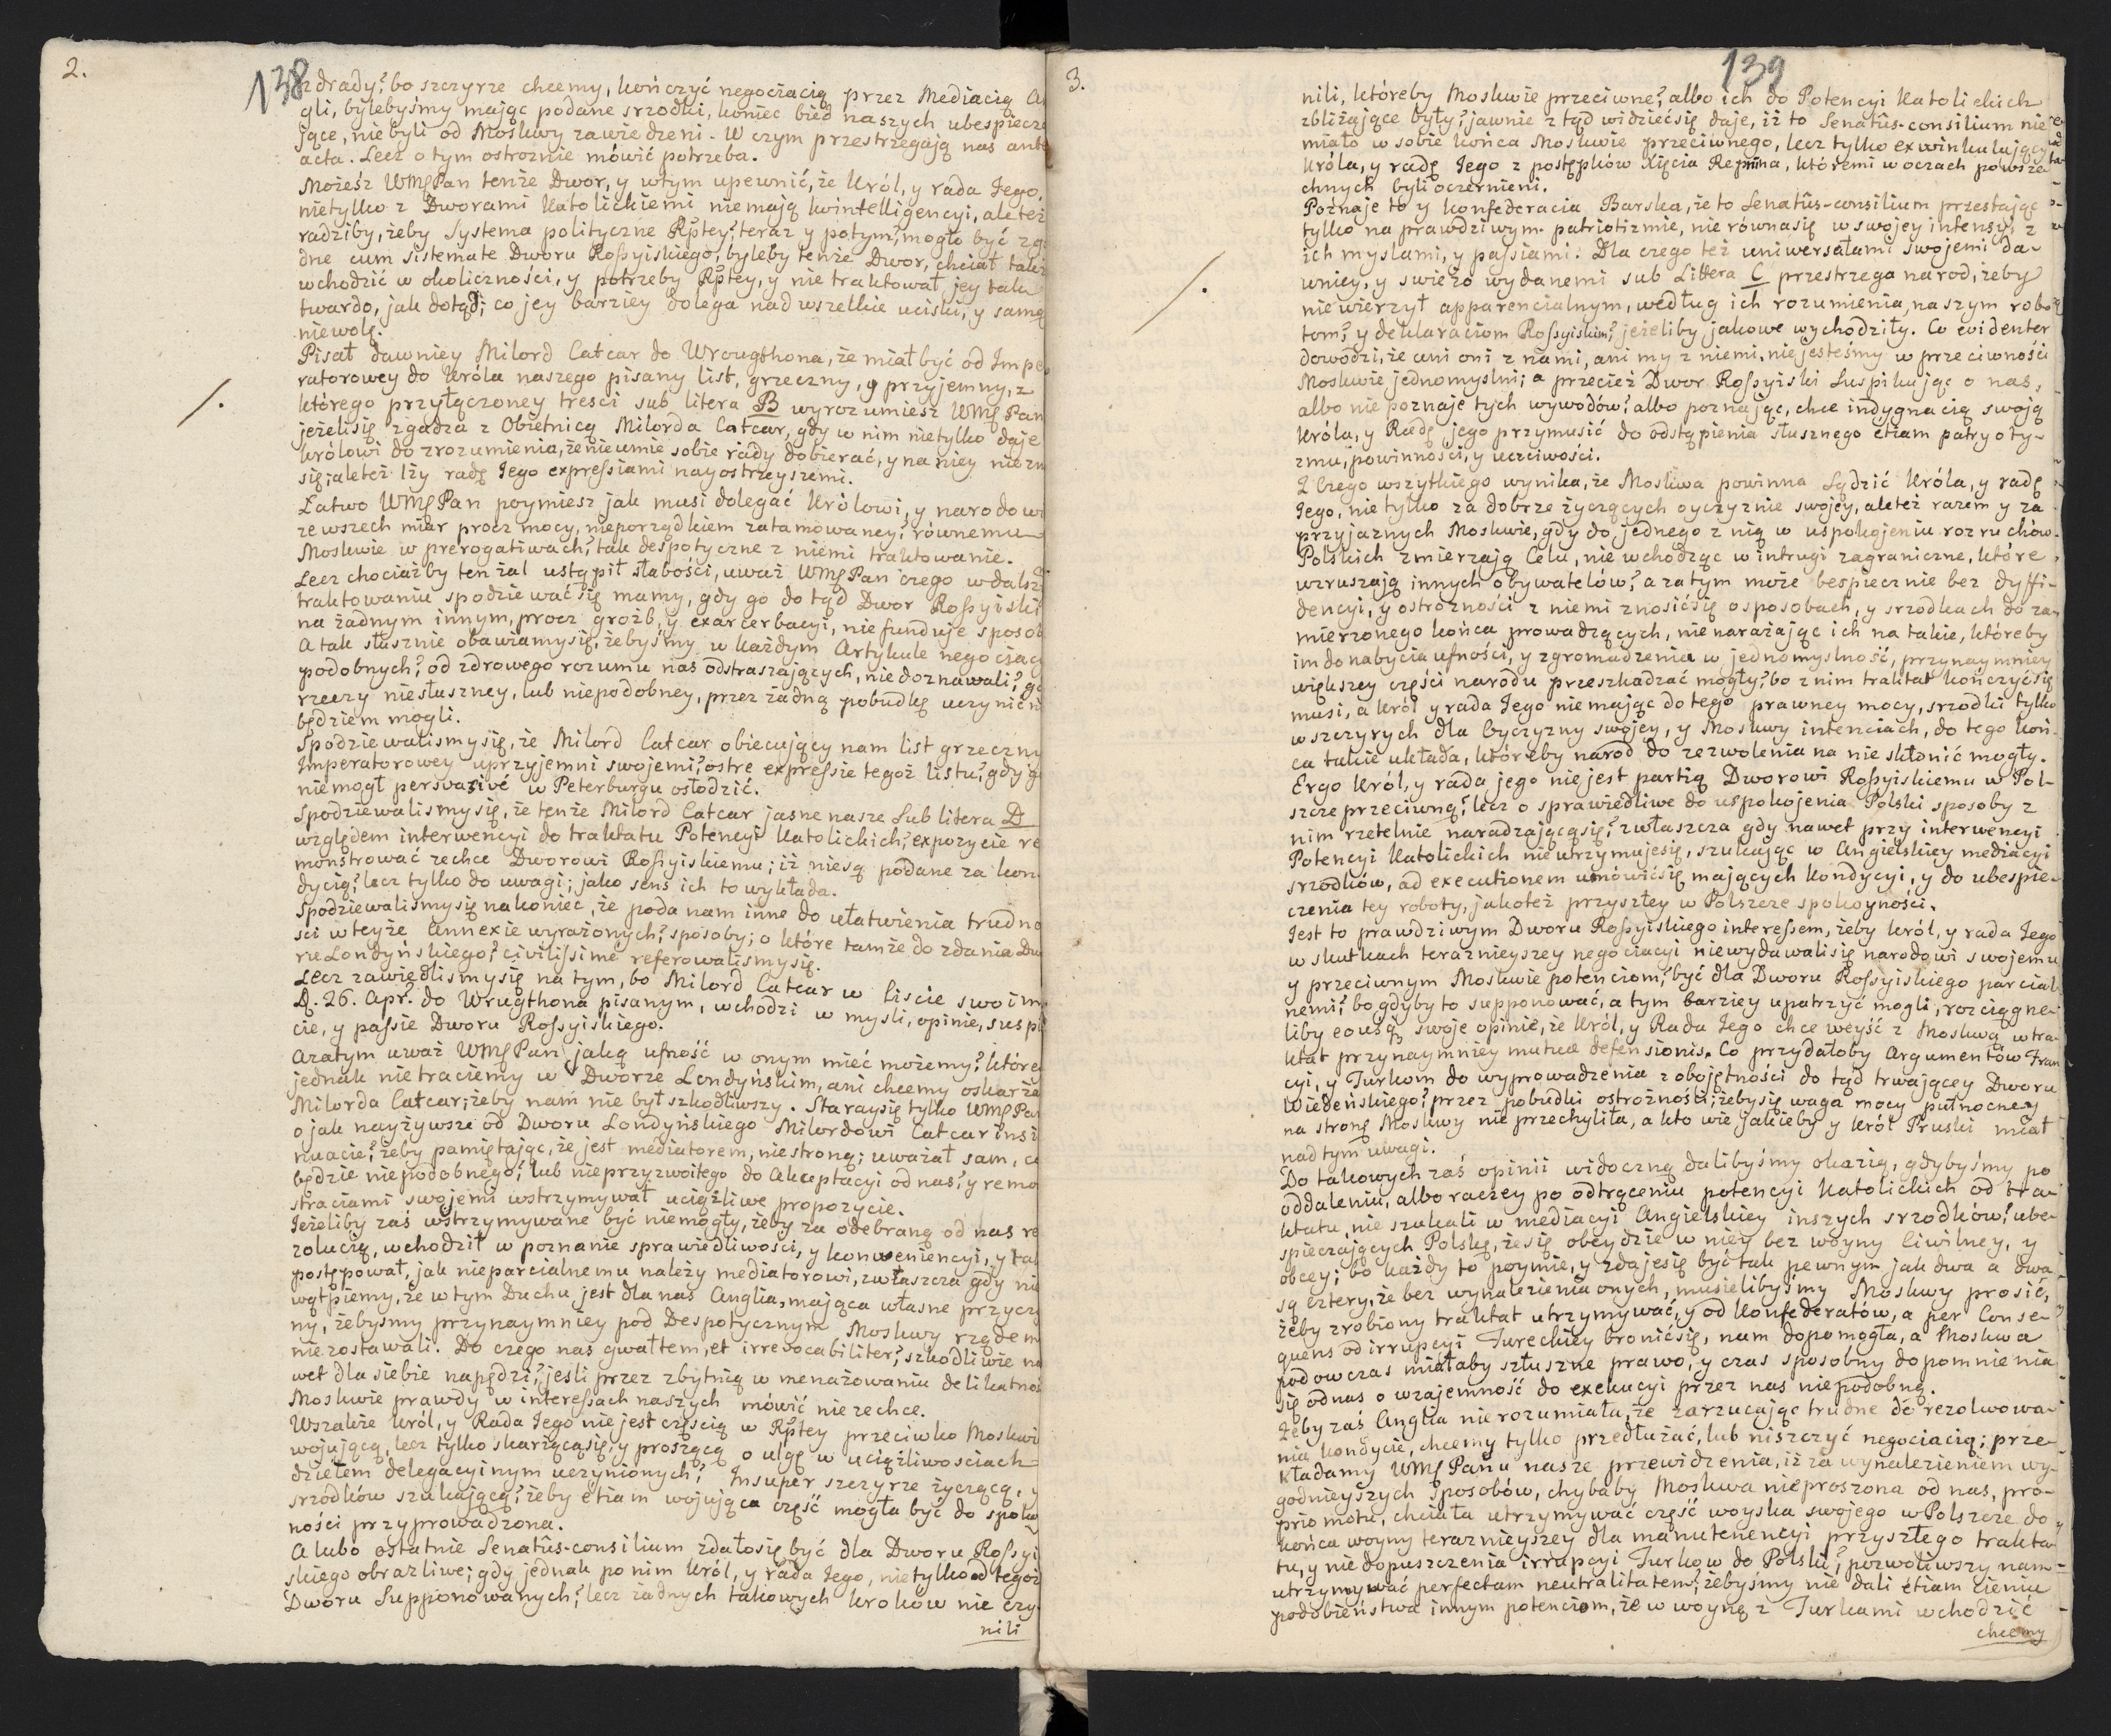 2.
138
zdrady? bo szczyrze chcemy, kończyć negociacią przez Mediacią
gli, bylebyśmy mając podane srzodki, koniec bied naszych ubespiecza
jące, niebyli od Moskwy zawiedzeni. W czym przestrzegają nas ante
acta. Lecz o tym ostroznie mówić potrzeba.
Możesz WMPan tenże Dwor, y wtym upewnić, że Król, y rada Jego,
nietylko z Dworami Katolickiemi niemają kointelligencyi, aleteż
radziby, żeby Systema polityczne Rptey, teraz y potym, mogło być zgo
dne cum sistemate Dworu Roßyiskiego, byleby tenże Dwor, chciał także
wchodzić w okoliczności, y potrzeby Rptey, y nie traktował jey tak
twardo, jak dotąd; co jey barziey dolega nad wszelkie uciski, y samą
niewolę.
Pisał dawniey Milord Catcar do Wroughtona, że miał być od Impe
ratorowey do Króla naszego pisany list, grzeczny, y przyjemny, z
którego przyłączoney tresci sub litera B wyrozumiesz WMPan
jeżelisię zgadza z Obietnicą Milorda Catcar, gdy w nim nietylko daje
królowi do zrozumienia, żenieumie sobie rady dobierać, y na niey niezna
się; aleteż lży radę Jego expreßiami nayostrzeyszemi.
Łatwo WMPan poymiesz jak musi dolegać Królowi, y narodowi
ze wszech miar procz mocy, nieporządkiem zatamowaney? równemu
Moskwie w prerogatiwach, tak despotyczne z niemi traktowanie.
Lecz chociażby ten żal ustąpił słabości, uważ WMPan czego wdalszym
traktowaniu spodziewaćsię mamy, gdy go dotąd Dwor Roßyiski
na żadnym innym, procz groźb, y exarcerbacyi, nie funduje sposob
A tak słusznie obawiamysię, żebyśmy w każdym Artykule negociacyi
podobnych? od zdrowego rozumu nas odstraszających, niedoznawali?
rzeczy niesłuszney, lub niepodobney, przez żadną pobudkę uczynić nie
będziem mogli.
Spodziewalismysię, że Milord Catcar obiecujący nam list grzeczny
Imperatorowey uprzyjemni swojemi? ostre expreßie tegoż listu? gdy go
niemogł persvasivé w Peterburgu osłodzić.
Spodziewalismysię, że tenże Milord Catcar jasne nasze Sub litera D
względem interwencyi do traktatu Potencyi Katolickich? expozycie re
monstrować zechce Dworowi Roßyiskiemu; iż niesą podane za kon
dycią? lecz tylko do uwagi; jako sens ich to wykłada.
Spodziewalismysię nakoniec, że poda nam inne do ułatwienia trudno
sci wteyże Annexie wyrażonych? sposoby; o które tamże do zdania Dwo
ru Londyńskiego? civilissimé referowalismysię.
Lecz zawiedlismysię na tym, bo Milord Catcar w liscie swoim
D. 26. Apr. do Wrugthona pisanym, wchodzi w mysli, opinie, suspi
cie, y paßie Dworu Roßyiskiego.
Azatym uważ WMPan jaką ufność w onym mieć możemy? które
jednak nietraciemy w Dworze Londyńskim, ani chcemy oskarżać
Milorda Catcar; żeby nam nie był szkodliwszy. Staraysię tylko WMPan
o jak nayżywsze od Dworu Londyńskiego Milordowi Catcar insi
nuacie? żeby pamiętając, że jest mediatorem, niestroną; uważał sam, co
będzie niepodobnego? lub nieprzyzwoitego do Akceptacyi od nas? y remon
straciami swojemi wstrzymywał uciążliwe propozycie.
Jeżeliby zaś wstrzymywane być niemogły, żeby za odebraną od nas re
zolucią, wchodził w poznanie sprawiedliwości, y konweniencyi, y tak
postępował, jak nieparcialnemu należy mediatorowi, zwłaszcza gdy nie
wątpiemy, że w tym Duchu jest dla nas Anglia, mająca własne przyczy
ny, żebyśmy przynaymniey pod Despotycznym Moskwy rządem
niezostawali. Do czego nas gwałtem, et irrevocabiliter? szkodliwie na
wet dla siebie napędzi? jesli przez zbytnią w menażowaniu delikatność
Moskwie prawdy w intereßach naszych mówić niezechce.
Wszakże Król, y Rada Jego niejest częscią w Rptey przeciwko Moskwie
wojującą, lecz tylko skarżącąsię, y proszącą o ulgę w uciążliwosciach
dziełem delegacyinym uczynionych? Insuper szczyrze życzącą, y
srzodków szukającą? żeby etiam wojująca część mogła być do spokoy
ności przyprowadzona.
Alubo ostatnie Senatûs-consilium zdałosię być dla Dworu Roßyi
skiego obrazliwe; gdy jednak po nim Król, y rada Jego, nietylko od tegoż
Dworu Supponowanych? lecz żadnych takowych kroków nie czy
nili
3.
139
nili, któreby Moskwie przeciwne? albo ich do Potencyi Katolickich
zbliżające były? jawnie z tąd widziećsię daje, iż to Senatûs-consilium nie
miało w sobie końca Moskwie przeciwnego, lecz tylko exwinkulujący
Króla, y radę Jego z postępków Xięcia Repnina, któremi w oczach powsze
chnych byli oczernieni.
Poznaje to y konfederacia Barska, że to Senatûs-consilium przestając
tylko na prawdziwym patriotizmie, nie równasię w swojey intensyi z
ich myslami, y paßiami. Dla czego też uniwersałami swojemi da-
wniey, y swieżo wydanemi sub Littera C przestrzega narod, żeby
niewierzył apparencialnym, według ich rozumienia, naszym robo
tom? y deklaraciom Roßyiskim? jeżeliby jakowe wychodziły. Co evidenter
dowodzi, że ani oni z nami, ani my z niemi, niejesteśmy w przeciwności
Moskwie jednomyslni; a przecież Dwor Roßyiski Suspikując o nas,
albo nie poznaje tych wywodów? albo poznając, chce indygnacią swoją
Króla, y Radę jego przymusić do odstąpienia słusznego etiam patryoty-
zmu, powinności, y uczciwości.
Z Czego wszytkiego wynika, że Moskwa powinna Sądzić Króla, y radę
Jego, nie tylko za dobrze życzących oyczyznie swojey, aleteż razem y za
przyjaznych Moskwie, gdy do jednego z nią w uspokojeniu rozruchów
Polskich zmierzają Celu, nie wchodząc w intrugi zagraniczne, które
wzruszają innych obywatelów? a zatym może bespiecznie bez dyffi-
dencyi, y ostrożności z niemi znosićsię o sposobach, y srzodkach do za-
mierzonego końca prowadzących, nienarażając ich na takie, któreby
im do nabycia ufności, y zgromadzenia w jednomyslność, przynaymniey
większey części narodu przeszkadzać mogły? bo z nim traktat kończyćsię
musi, a Król y rada Jego niemając do tego prawney mocy, srzodki tylko
w szczyrych dla Oyczyzny swojey, y Moskwy intenciach, do tego koń-
ca takie układa, któreby narod do zezwolenia na nie skłonić mogły.
Ergo Król, y rada jego niejest partią Dworowi Roßyiskiemu w Pol-
szcze przeciwną? lecz o sprawiedliwe do uspokojenia Polski sposoby z
nim rzetelnie naradzającąsię? zwłaszcza gdy nawet przy interwencyi
Potencyi Katolickich nieutrzymujesię, szukając w Angielskiey mediacyi
srzodków, ad executionem umówićsię mających kondycyi, y do ubespie-
czenia tey roboty, jakoteż przyszłey w Polszcze spokoyności.
Jest to prawdziwym Dworu Roßyiskiego intereßem, żeby Król, y rada Jego
w skutkach teraznieyszey negociacyi niewydawalisię narodowi swojemu
y przeciwnym Moskwie potenciom? być dla Dworu Roßyiskiego parcial
nemi? bo gdyby to supponować, a tym barziey upatrzyć mogli, rozciągne-
liby eousq swoje opinie, że Król, y Rada Jego chce weyść z Moskwą w tra-
ktat przynaymniey mutuæ defensionis. Co przydałoby Argumentów Fran
cyi, y Turkom do wyprowadzenia z obojętności do tąd trwającey Dworu
Wiedeńskiego? przez pobudki ostrożności; żebysię waga mocy pułnocney
na stronę Moskwy nie przechyliła, a kto wie jakieby y Król Pruski miał
nad tym uwagi.
Do takowych zaś opinii widoczną dalibyśmy okazią, gdybyśmy po
oddaleniu, albo raczey po odtrąceniu potencyi Katolickich od tra-
ktatu, nie szukali w mediacyi Angielskiey inszych srzodków? ube-
spieczających Polskę, żesię obeydzie w niey bez woyny Ciwilney, y
obcey; bo każdy to poymie, y zdajesię być tak pewnym jak dwa a dwa
są cztery, że bez wynalezienia onych, musielibyśmy Moskwy prosić,
żeby zrobiony traktat utrzymywać, y od Konfederatów, a per Conse-
quens od irrupcyi Tureckiey bronićsię, nam dopomogła, a Moskwa
podowczas miałaby szłuszne prawo, y czas sposobny dopomnienia
się odnas o wzajemność do exekucyi przez nas niepodobną.
Żeby zaś Anglia nierozumiała, że zarzucając trudne do rezolwowa-
nia kondycie, chcemy tylko przedłużać, lub niszczyć negociacią; prze-
kładamy WMPanu nasze przewidzenia, iż za wynalezieniem wy-
godnieyszych sposobów, chybaby Moskwa nieproszona od nas, pro-
prio motu, chciała utrzymywać część woyska swojego w Polszcze do
końca woyny teraznieyszey dla manutenencyi przyszłego trakta-
tu, y niedopuszczenia irrupcyi Turkow do Polski? pozwoliwszy nam
utrzymywać perfectam neutralitatem? żebyśmy nie dali etiam cieniu
podobieństwa innym potenciom, że w woynę z Turkami wchodzić
chcemy